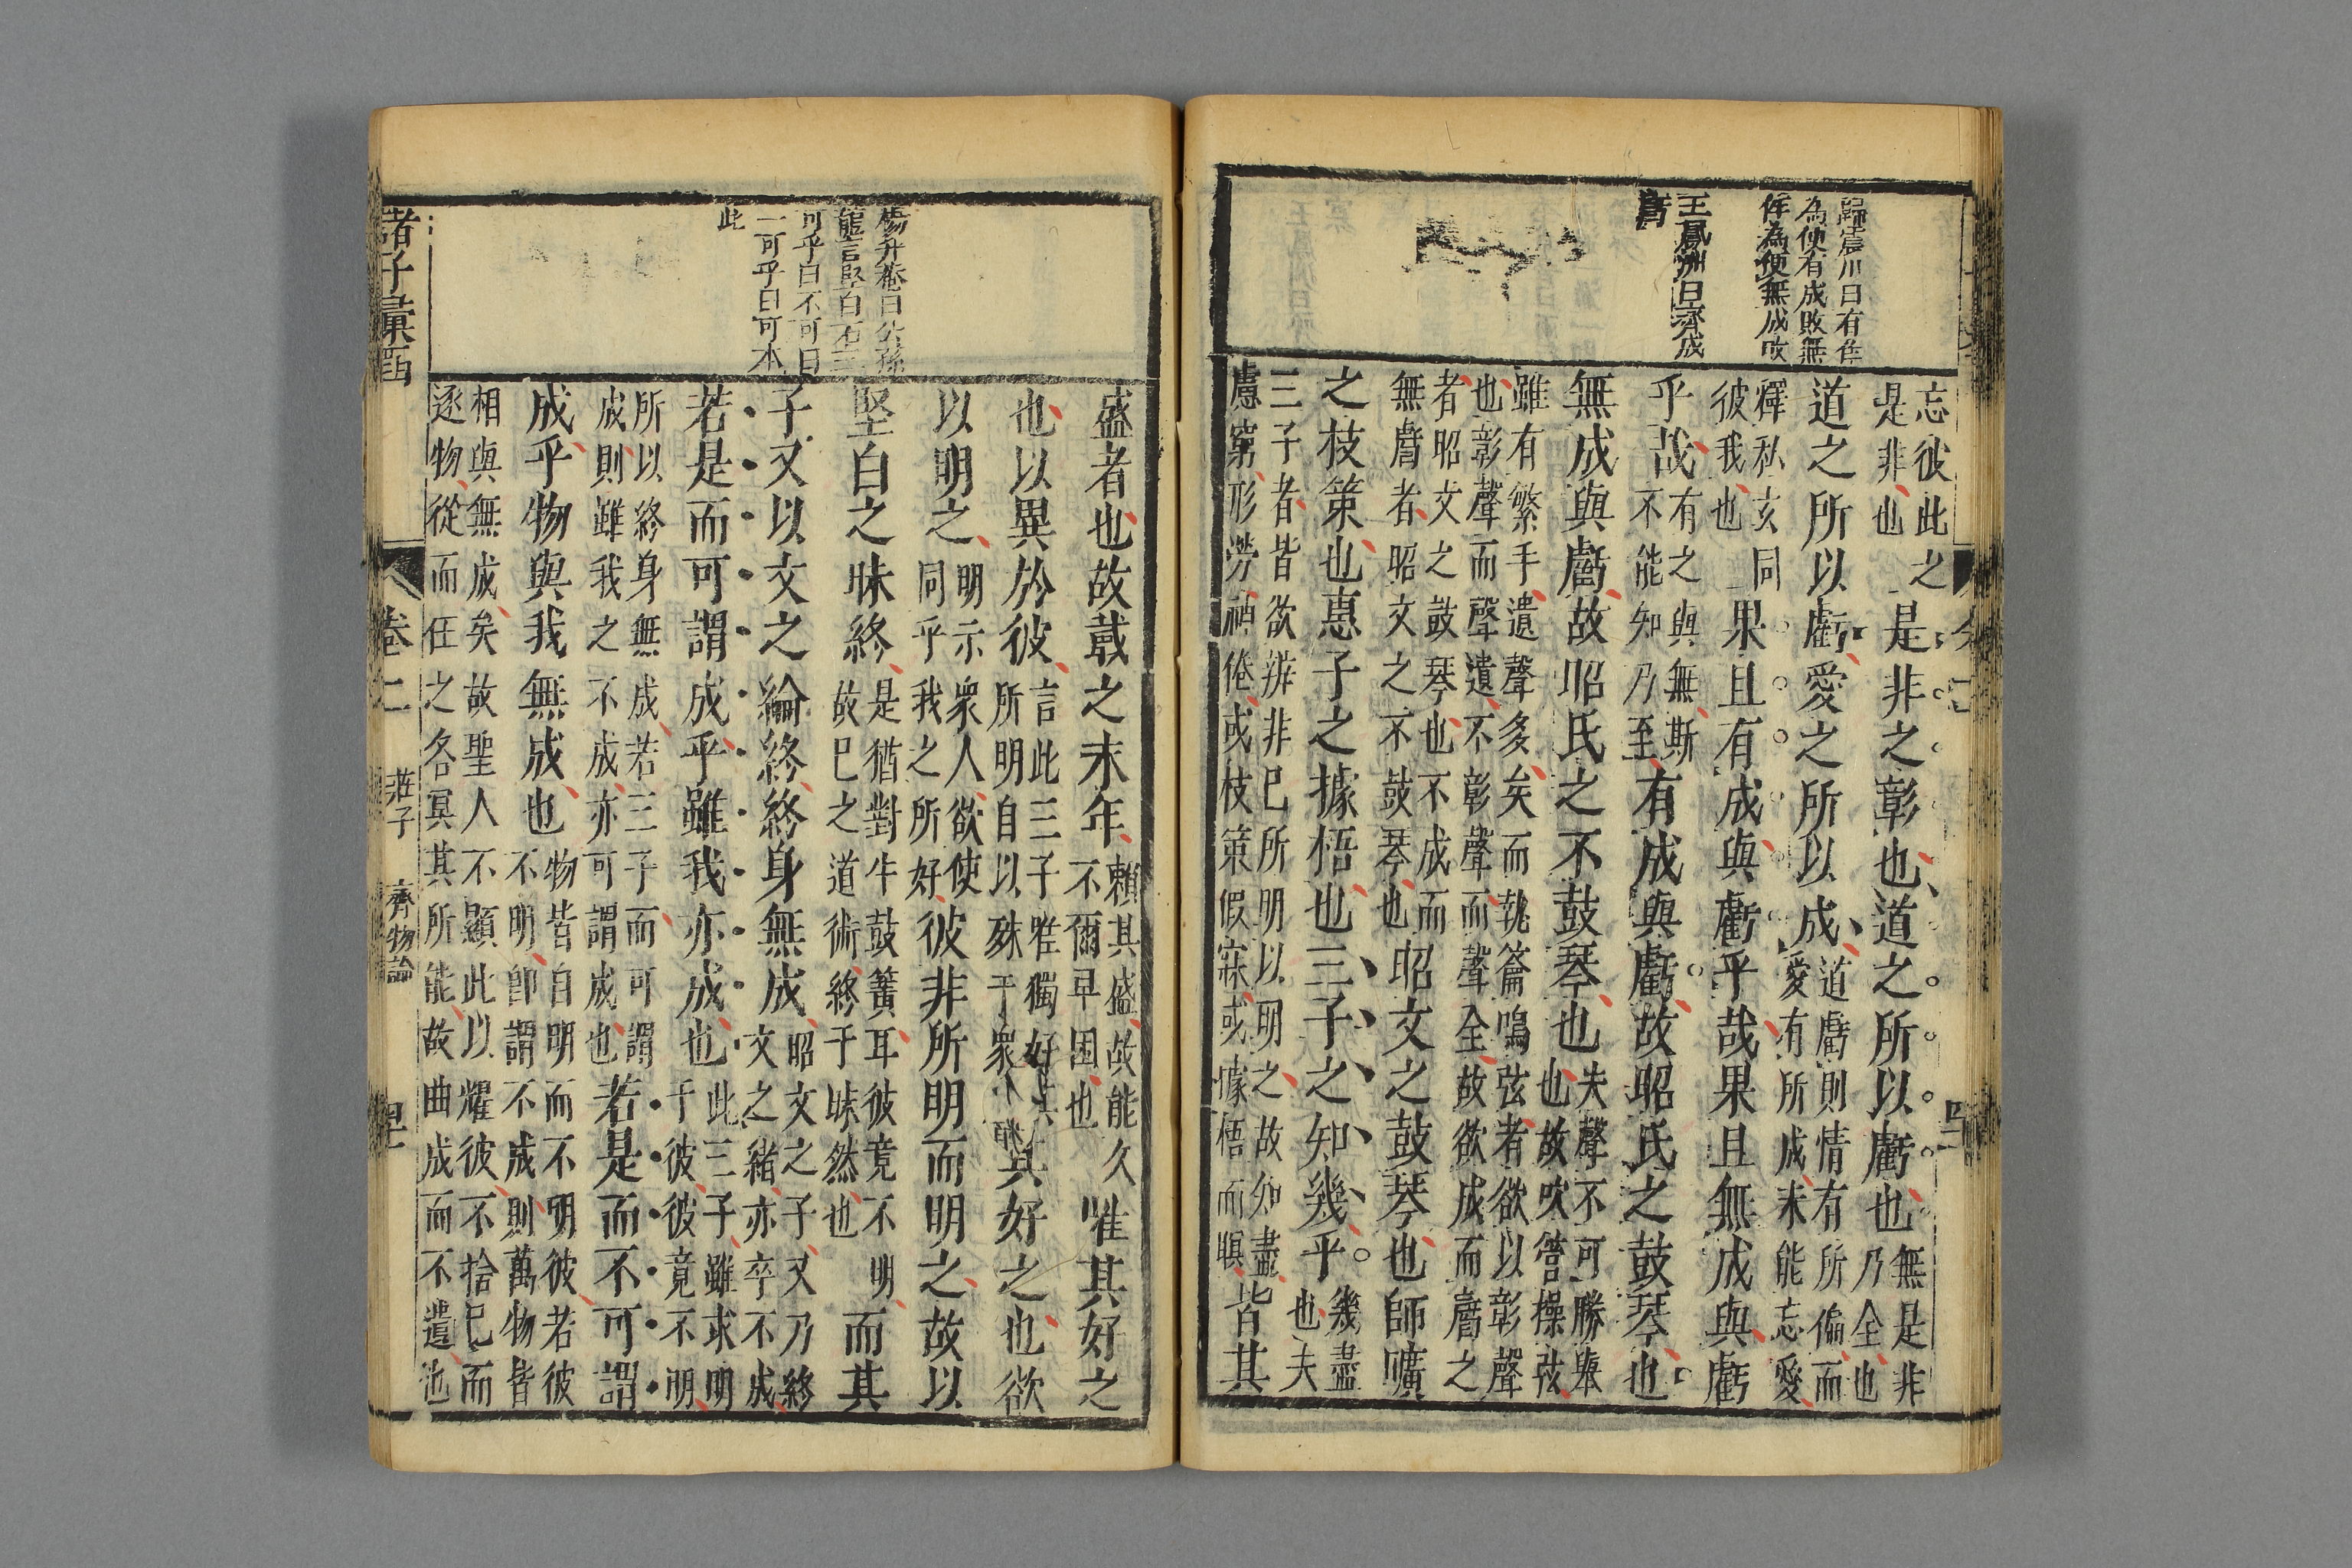 歸震川曰有作
為便有成敗無
作為便無成敗
王鳳洲曰齊成
虧
忘彼此之
是非也
是非之彰也道之所以虧也
無是非
乃全也
道之所以虧愛之所以成
道虧則情有所偏而
愛有所成未能忘愛
釋私玄同
彼我也
果且有成與虧乎哉果且無成與虧
乎哉
有之與無斯
不能知乃至
有成與虧故昭氏之鼓琴也
無成與虧故昭氏之不鼓琴也
夫聲不可勝舉
也故吹管操弦
雖有繁手遺聲多矣而執籥鳴弦者欲以彰聲
也彰聲而聲遺不彰聲而聲全故欲成而虧之
者昭文之鼓琴也不成而
無虧者昭文之不鼓琴也
昭文之鼓琴也師曠
之枝策也惠子之據梧也三子之知幾乎
幾盡
也夫
三子者皆欲辨非己所明以明之故知盡
慮窮形勞神倦或枝策假寐或據梧而瞑
皆其
楊升菴曰公孫
龍言堅白石三
可乎曰不可曰
一可乎曰可本
此
盛者也故載之末年
賴其盛故能久
不爾早困也
惟其好之
也以異於彼
言此三子惟獨好其
所明自以殊于眾人
其好之也欲
以明之
明示眾人欲使
同乎我之所好
彼非所明而明之故以
堅白之昧終
是猶對牛鼓簧耳彼竟不明
故已之道術終于昧然也
而其
子又以文之綸終終身無成
昭文之子又乃終
文之緒亦卒不成
若是而可謂成乎雖我亦成也
此三子雖求明
于彼彼竟不明
所以終身無成若三子而可謂
成則雖我之不成亦可謂成也
若是而不可謂
成乎物與我無成也
物皆自明而不明彼若彼
不明即謂不成則萬物皆
相與無成矣故聖人不顯此以耀彼不捨己而
逐物從而任之各冥其所能故曲成而不遺也
諸子彙函
卷二
莊子
齊物論